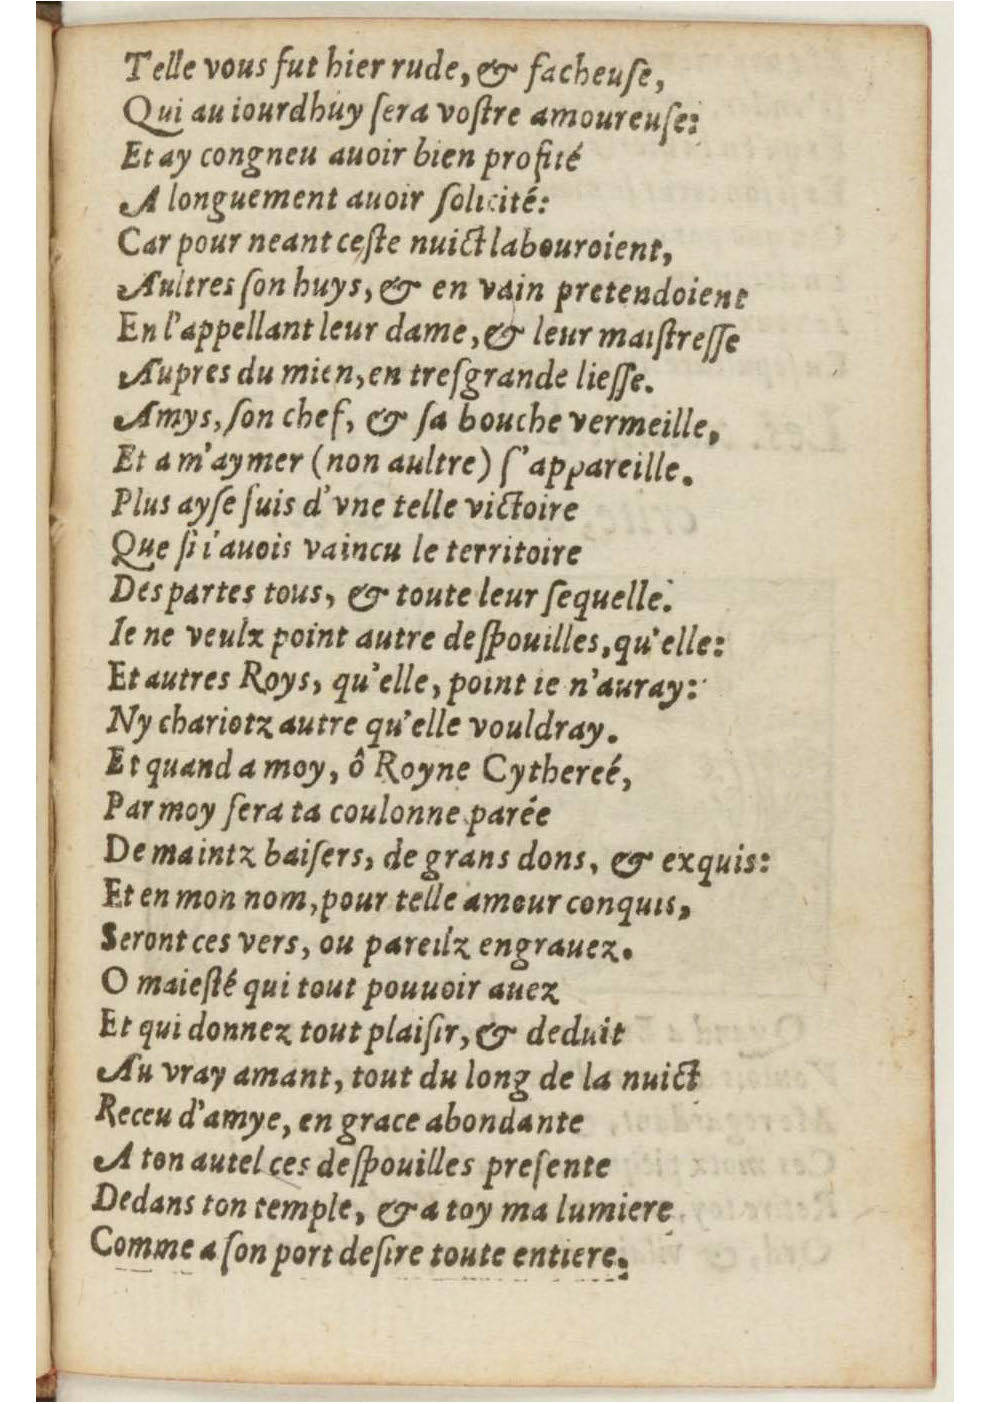 Telle vous fut hier rude, & facheuſe,
Qui au iourdhuy ſera voſtre amoureuſe:
Et ay congneu auoir bien profité
A longuement auoir ſolicité:
Car pour neant ceſte nuict labouroient,
Aultres ſon huys, & en vain pretendoient
En l'appellant leur dame, & leur maiſtreſſe
Aupres du mien, en treſgrande lieſſe.
Amys, ſon chef, & ſa bouche vermeille,
Et a m'aymer (non aultre) ſ'appareille.
Plus ayſe ſuis d'vne telle victoire
Que ſi i'auois vaincu le territoire
Des partes tous, & toute leur ſequelle.
Ie ne veulx point autre deſpouilles, qu'elle:
Et autres Roys, qu'elle, point ie n'auray:
Ny chariotz autre qu'elle vouldray.
Et quand a moy, ô Royne Cythereé,
Par moy ſera ta coulonne parée
De maintz baiſers, de grans dons, & exquis:
Et en mon nom, pour telle amour conquis,
Seront ces vers, ou pareilz engrauez.
O maieſté qui tout pouuoir auez
Et qui donnez tout plaiſir, & deduit
Au vray amant, tout du long de la nuict
Receu d'amye, en grace abondante
A ton autel ces deſpouilles preſente
Dedans ton temple, & a toy ma lumiere
Comme a ſon port deſire toute entiere.